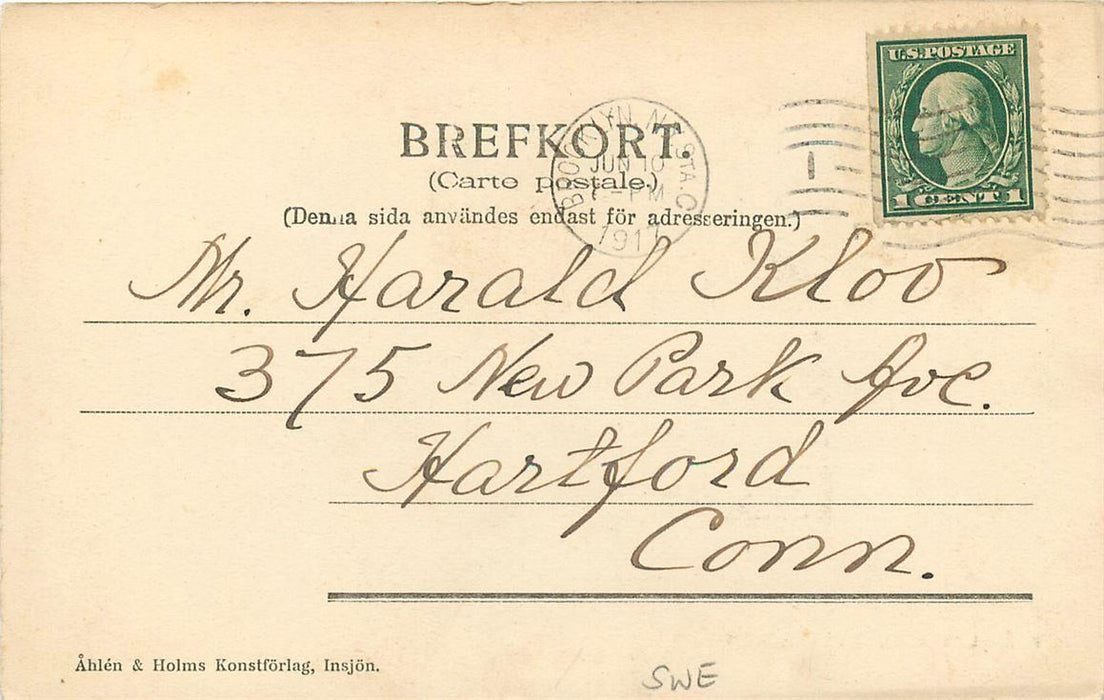 U.S.POSTAGE
1 CENT 1
BREFKORT.
(Carte postale.)
(Denna sida användes endast för adresseringen.)
BROOKLYN, N.Y. STA. C
JUN 10
-PM
1911
1
Mr. Harald Kloo
375 New Park Ave.
Hartford
Conn.
Åhlén & Holms Konstförlag, Insjön.
SWE